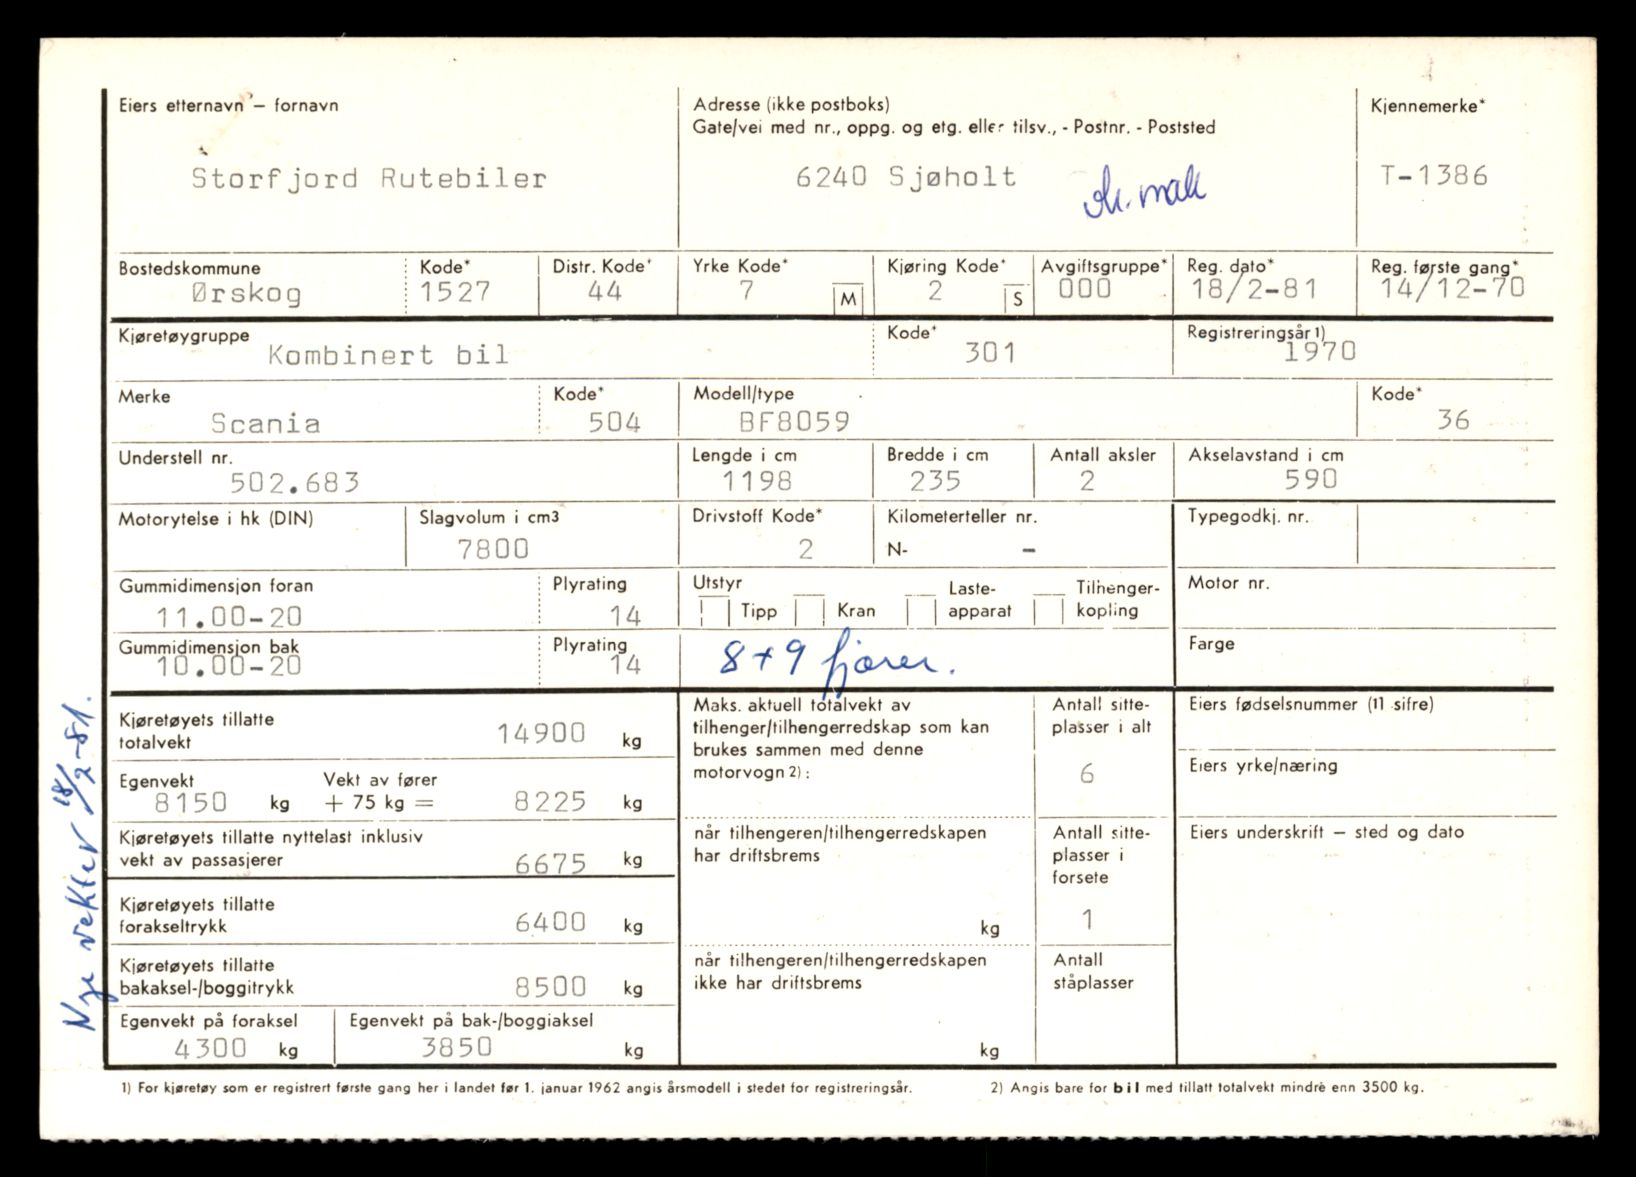 Eiers etternavn – fornavn
Storfjord Rutebiler
Adresse (ikke postboks)
Gate/vei med nr., oppg. og etg. eller tilsv., - Postnr. - Poststed
6240 Sjøholt
Kjennemerke*
T-1386
Bostedskommune
Ørskog
Kode*
1527
Distr. Kode*
44
Yrke Kode*
7
M
Kjøring Kode*
2
S
Avgiftsgruppe*
000
Reg. dato*
18/2-81
Reg. første gang*
14/12-70
Kjøretøygruppe
Kombinert bil
Kode*
301
Registreringsår 1)
1970
Merke
Scania
Kode*
504
Modell/type
BF8059
Kode*
36
Understell nr.
502.683
Lengde i cm
1198
Bredde i cm
235
Antall aksler
2
Akselavstand i cm
590
Motorytelse i hk (DIN)
Slagvolum i cm3
7800
Drivstoff Kode*
2
Kilometerteller nr.
N- -
Typegodkj. nr.
Gummidimensjon foran
11.00-20
Plyrating
14
Utstyr
Tipp
Kran
Laste-
apparat
Tilhenger-
kopling
Motor nr.
Gummidimensjon bak
10.00-20
Plyrating
14
8+9 fjærer.
Farge
Kjøretøyets tillatte
totalvekt
14900 kg
Egenvekt
8150 kg
Vekt av fører
+ 75 kg =
8225 kg
Kjøretøyets tillatte nyttelast inklusiv
vekt av passasjerer
6675 kg
Kjøretøyets tillatte
forakseltrykk
6400 kg
Kjøretøyets tillatte
bakaksel-/boggitrykk
8500 kg
Egenvekt på foraksel
4300 kg
Egenvekt på bak-/boggiaksel
3850 kg
Maks. aktuell totalvekt av
tilhenger/tilhengerredskap som kan
brukes sammen med denne
motorvogn 2) :
når tilhengeren/tilhengerredskapen
har driftsbrems
kg
når tilhengeren/tilhengerredskapen
ikke har driftsbrems
kg
Antall sitte-
plasser i alt
6
Antall sitte-
plasser i
forsete
1
Antall
ståplasser
Eiers fødselsnummer (11 sifre)
Eiers yrke/næring
Eiers underskrift – sted og dato
Nye vekter 18/2-81.
1) For kjøretøy som er registrert første gang her i landet før 1. januar 1962 angis årsmodell i stedet for registreringsår.
2) Angis bare for bil med tillatt totalvekt mindre enn 3500 kg.